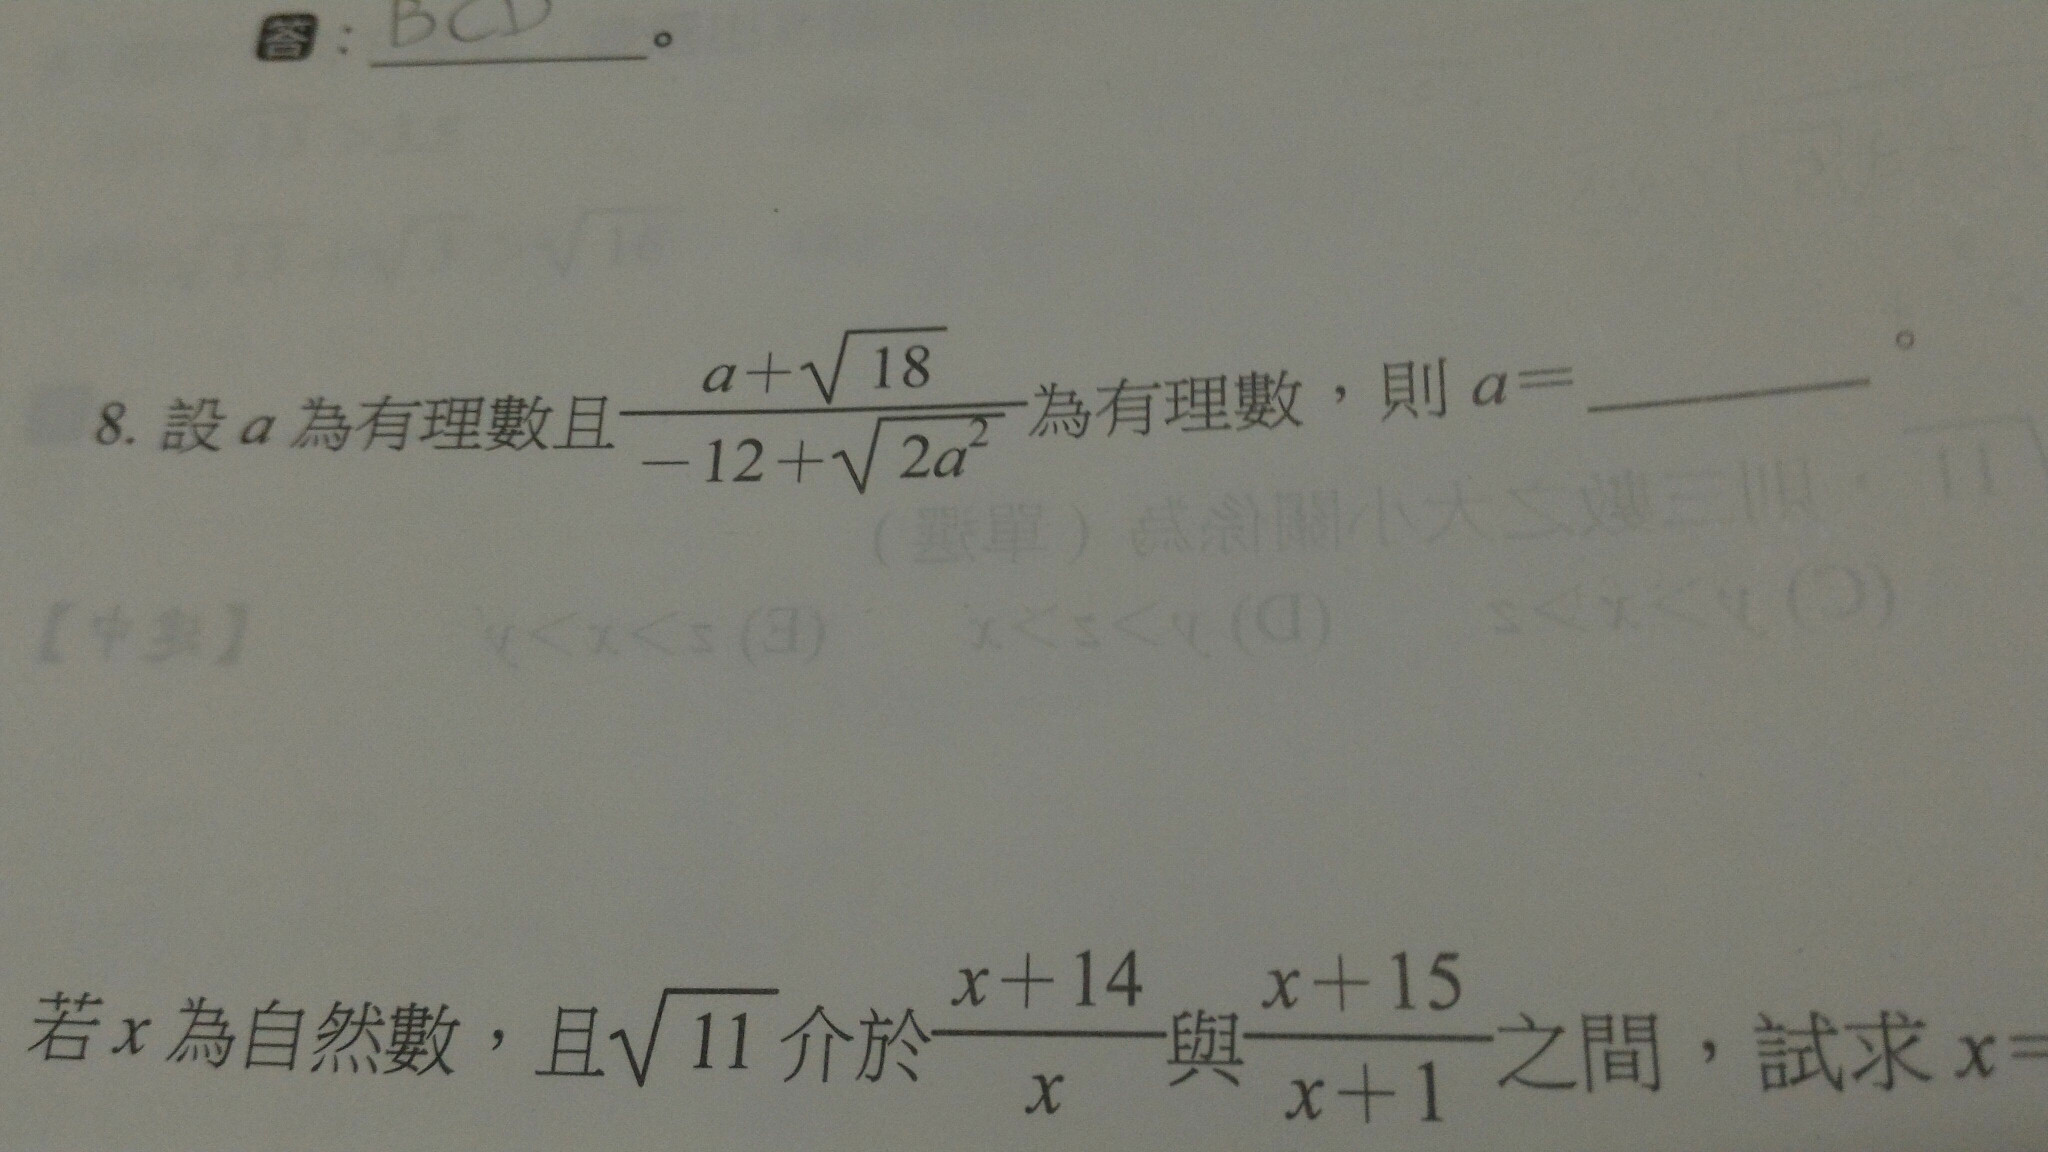 答：BCD。
8. 設 a 為有理數且 \frac{a+\sqrt{18}}{-12+\sqrt{2a^2}} 為有理數，則 a=______。
若 x 為自然數，且 \sqrt{11} 介於 \frac{x+14}{x} 與 \frac{x+15}{x+1} 之間，試求 x=